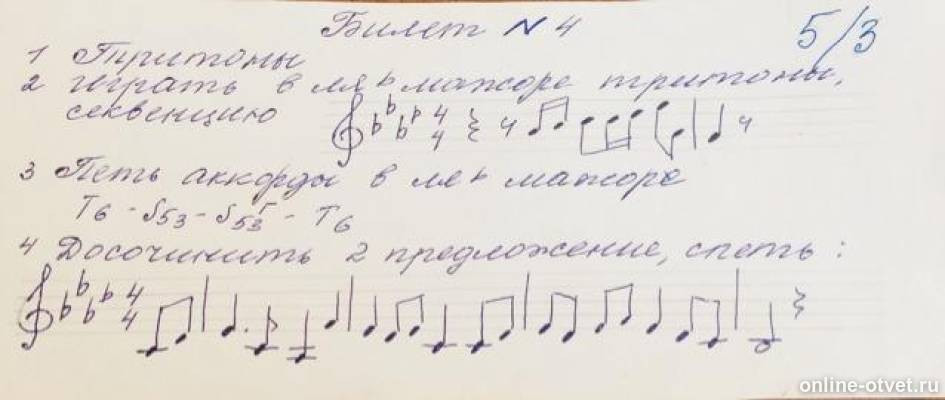 Билет № 4
5/3
1 Тритоны
2 играть в ля ♭ мажоре тритоны,
секвенцию
4
4
3 Петь аккорды в ля ♭ мажоре
T6 - S53 - S53г - T6
4 Досочинить 2 предложение, спеть:
4
4
online-otvet.ru